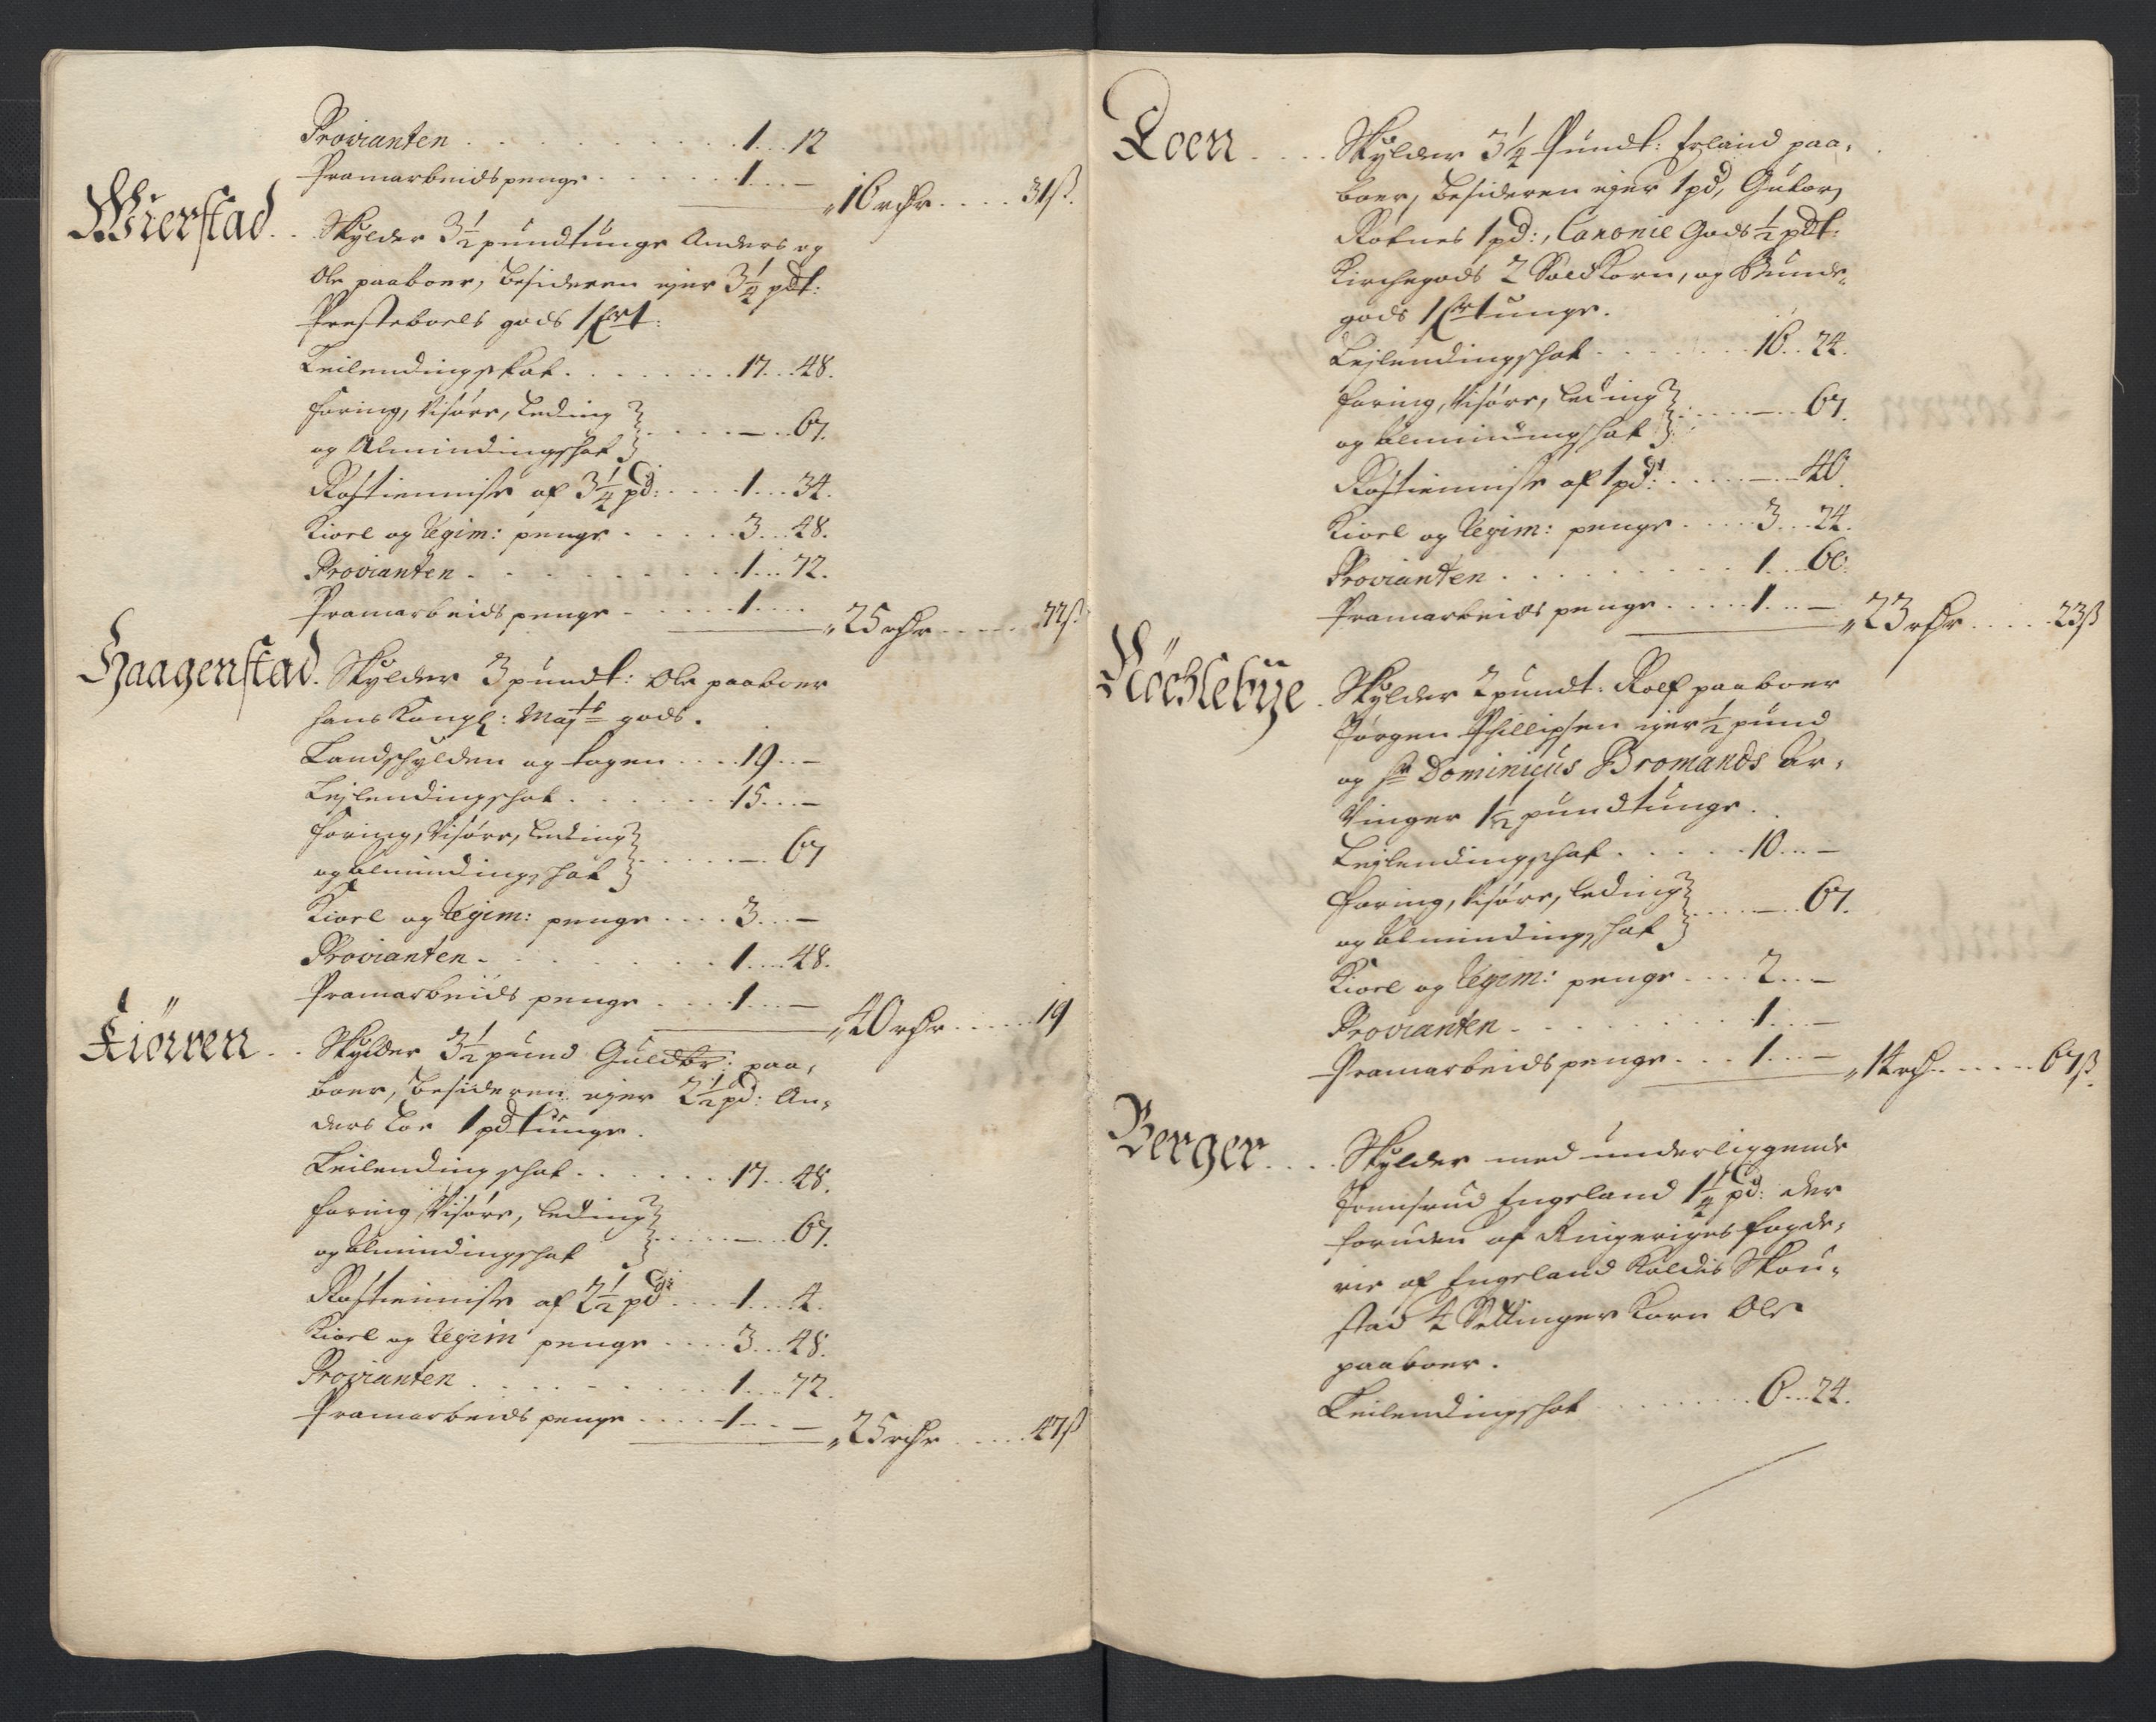 Provianten . . . . . . . . . 1 . . . 12
Pramarbeidspenge . . . . . . 1 . . . —
16 rdr . . . . 31 ß.
Wierstad . . Skylder 3½ pundtunge Anders og
Ole paaboer, besideren ejer 3¼ pdt:
Presteboels gods 1 fr t:
Leilendingskat . . . . . . 17 . . . 48.
Foring, Visøre, Leding
og Almindingskat . . . . — . . 67.
Rostienniste af 3¼ pd: . . . . 1 . . . 34.
Kioel og Regim: penge . . . . . 3 . . . 48.
Provianten . . . . . . . . . 1 . . . 72.
Pramarbeids penge . . . . . 1 . . . .
25 rdr . . . . . 77 ß
Haagenstad. Skylder 3 pundt: Ole paaboer
hans Kongl: Mayts gods.
Landschylden og tagen . . . . 19 . . —
Lejlendingschat . . . . . . . 15 . . . —
Foring, Visøre, Leding
og Almindingschat . . . . . — . 67
Kioel og Regim: penge . . . . 3 . . . —
Provianten . . . . . . . . . 1 . . . . 48.
Pramarbeids penge . . . . 1 . . . —
40 rdr . . . . . 19
Kiörren . . Skylder 3½ pund Guldbr: paa,
boer, besideren ejer 2½ pd: An,
ders Loe 1 pdtunge.
Leilendingschat . . . . . . 17 . . 48.
Foring, Visøre, Leding
og Almindingschat . . . . . — . . 67.
Rostienniste af 2½ pd . . . 1 . . . 4.
Kioel og Regim penge . . . . 3 . . . 48.
Provianten . . . . . . . . 1 . . . 72.
Pramarbeids penge . . . . 1 . . . —
25 rdr . . . . . 47 ß
Loen . . . . Skylder 3¼ Pundt: Erland paa,
boer, besideren ejer 1 pd, Gutorm
Rotnes 1 pd:, Canonie Gods ½ pdt:
Kirchegods 2 Sold Korn, og Bunde,
gods 1 fr tunge.
Lejlendingschat . . . . . . . 16 . . 24.
Foring, Visøre, Leding
og Almindingschat . . . . . — . . 67.
Rostienniste af 1 pd: . . . . . — . 40.
Kioel og Regim: penge . . . . . 3 . . . 24.
Provianten . . . . . . . . . 1 . . . 60.
Pramarbeids penge . . . . . 1 . . . —
23 rdr . . . . . 23 ß
Röchlebÿe . Skylder 2 pundt: Rolf paaboer
Jørgen Phillipsen ejer ½ pund
og Sr Dominicus Bromands Ar,
vinger 1½ pundtunge.
Lejlendingschat . . . . . 10 . . . —
Foring, Visøre, Leding
og Almindingschat . . . . — . . 67.
Kioel og Regim: penge . . . . 2 . . . —
Provianten . . . . . . . . . 1 . . . —
Pramarbeidspenge . . . 1 . . . —
14 rd . . . . . . 67 ß.
Berger . . . . Skylder med underliggende
Engeland 1¼ pd: der
foruden af Ringeriges fogde,
rie af Engeland Kaldis Skou,
stad 4 Settinger Korn Ole
paaboer.
Leilendingschat . . . . . . . . 6 . . . 24.